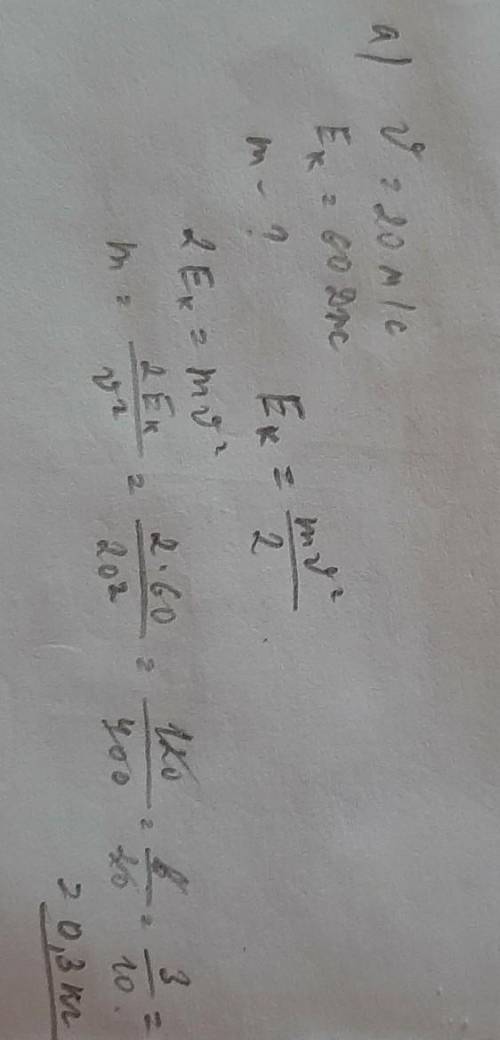 а) υ = 20 м/с
Eк = 60 Дж
m - ?
Eк = mυ²/2
2Eк = mυ²
m = 2Eк/υ² = 2·60/20² = 120/400 = 6/20 = 3/10 =
= 0,3 кг